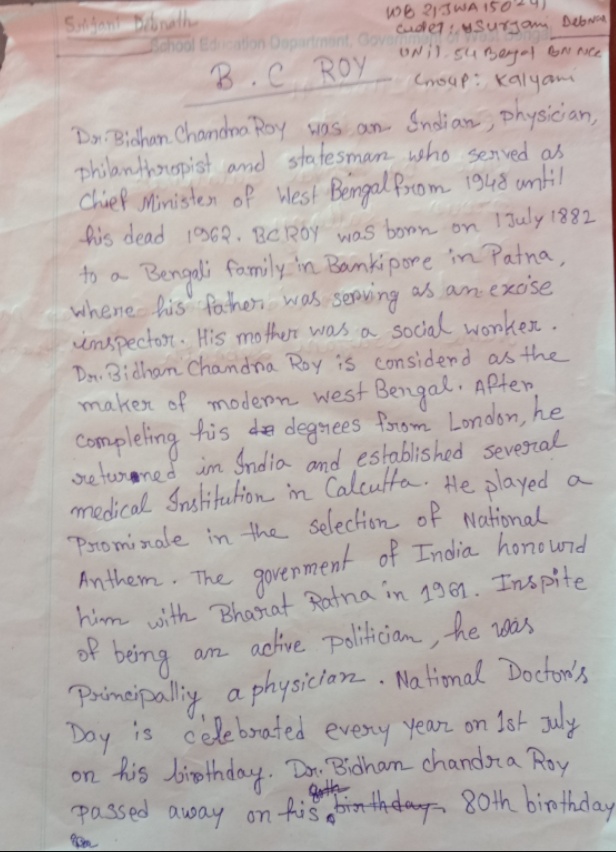 WB21JWA150291
Surjani Debnath
Cadet: Surjani Debnath
School Education Department, Government of West Bengal
Unit: 54 Bengal BN NCC
B. C ROY
Group: Kalyani
Dr. Bidhan Chandra Roy was an Indian, physician,
philanthropist and statesman who served as
Chief Minister of West Bengal from 1948 until
his dead 1962. BC ROY was born on 1 July 1882
to a Bengali family in Bankipore in Patna,
where his father was serving as an excise
inspector. His mother was a social worker.
Dr. Bidhan Chandra Roy is considerd as the
maker of modern west Bengal. After
completing his de degrees from London, he
returned in India and established several
medical Institution in Calcutta. He played a
Prominale in the selection of National
Anthem. The goverment of India honowrd
him with Bharat Ratna in 1961. Inspite
of being an active politician, he was
Principalliy a physician. National Doctor's
Day is celebrated every year on 1st July
on his birthday. Dr. Bidhan chandra Roy
passed away on his 80th birthday 80th birthday